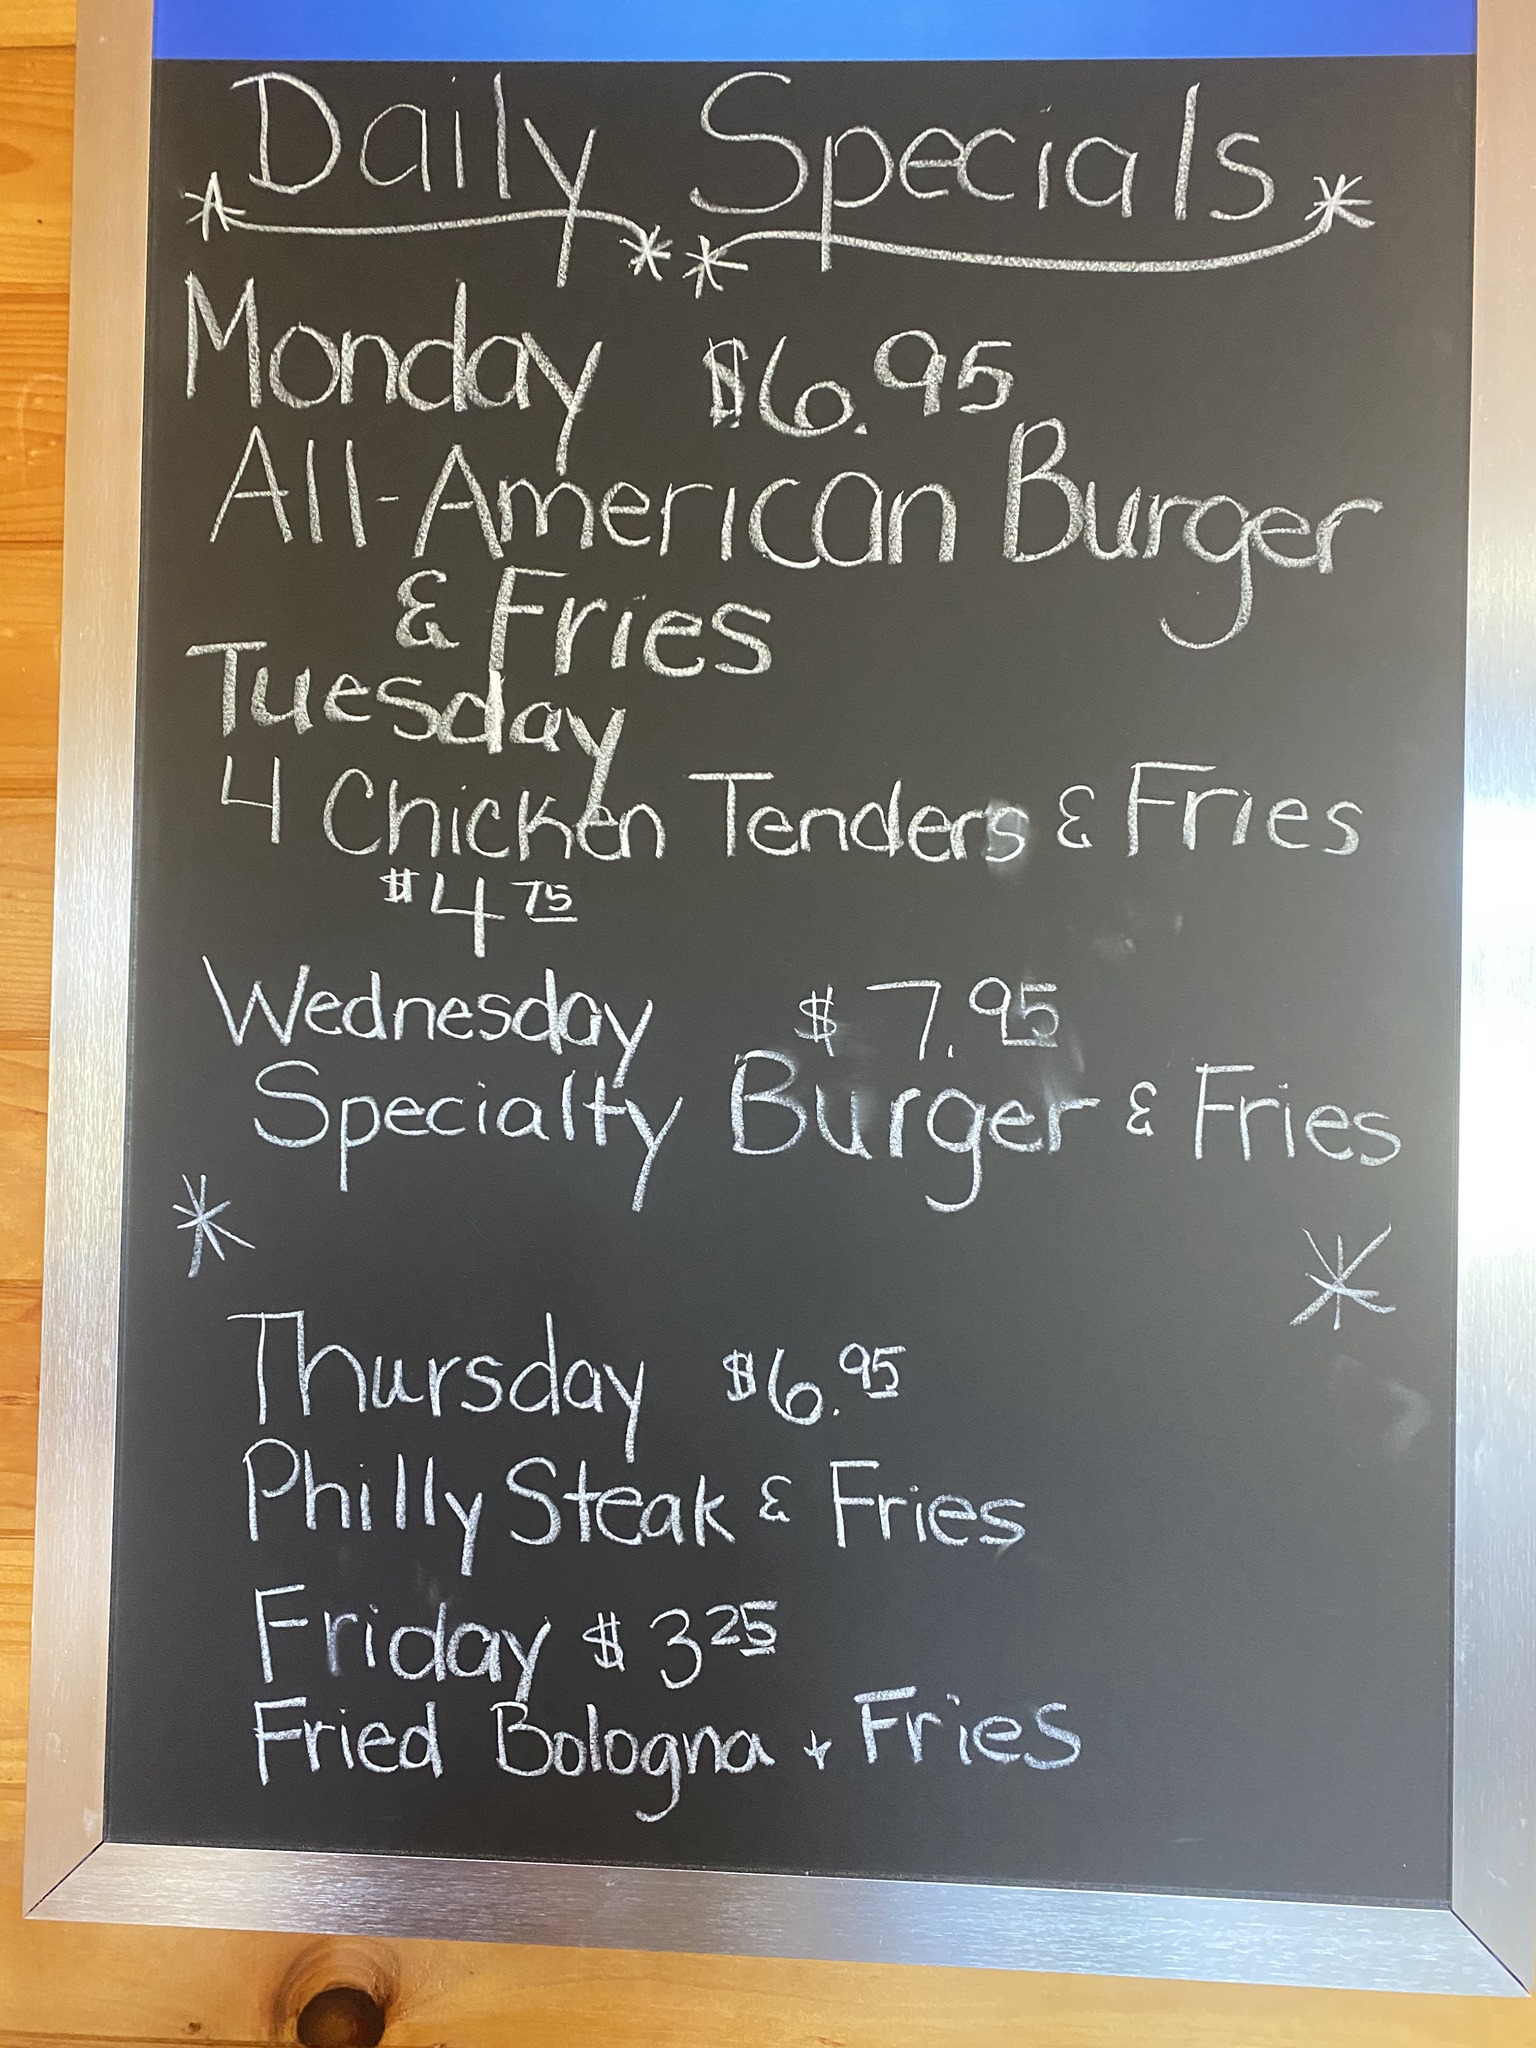 Daily Specials
Monday $6.95
All-American Burger
& Fries
Tuesday
4 Chicken Tenders & Fries
$4 75
Wednesday $7.95
Specialty Burger & Fries
* *
Thursday $6.95
Philly Steak & Fries
Friday $3 25
Fried Bologna + Fries